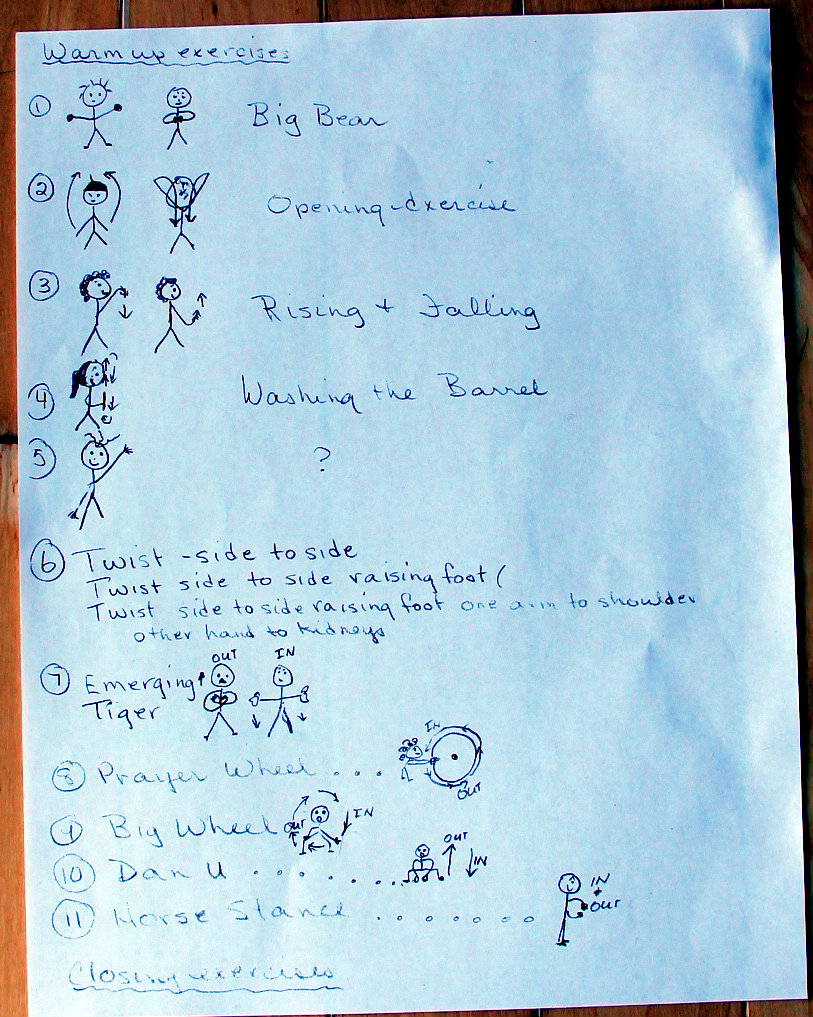 Warm up exercises
1 Big Bear
2 Opening-exercise
3 Rising + Falling
4 Washing the Barrel
5 ?
6 Twist - side to side
Twist side to side raising foot (
Twist side to side raising foot one arm to shoulder
other hand to kidneys
7 Emerging Tiger OUT IN
8 Prayer Wheel . . . IN OUT
9 Big Wheel OUT IN
10 Dan U . . . . . . . . OUT IN
11 Horse Stance . . . . . . . IN + OUT
Closing exercises